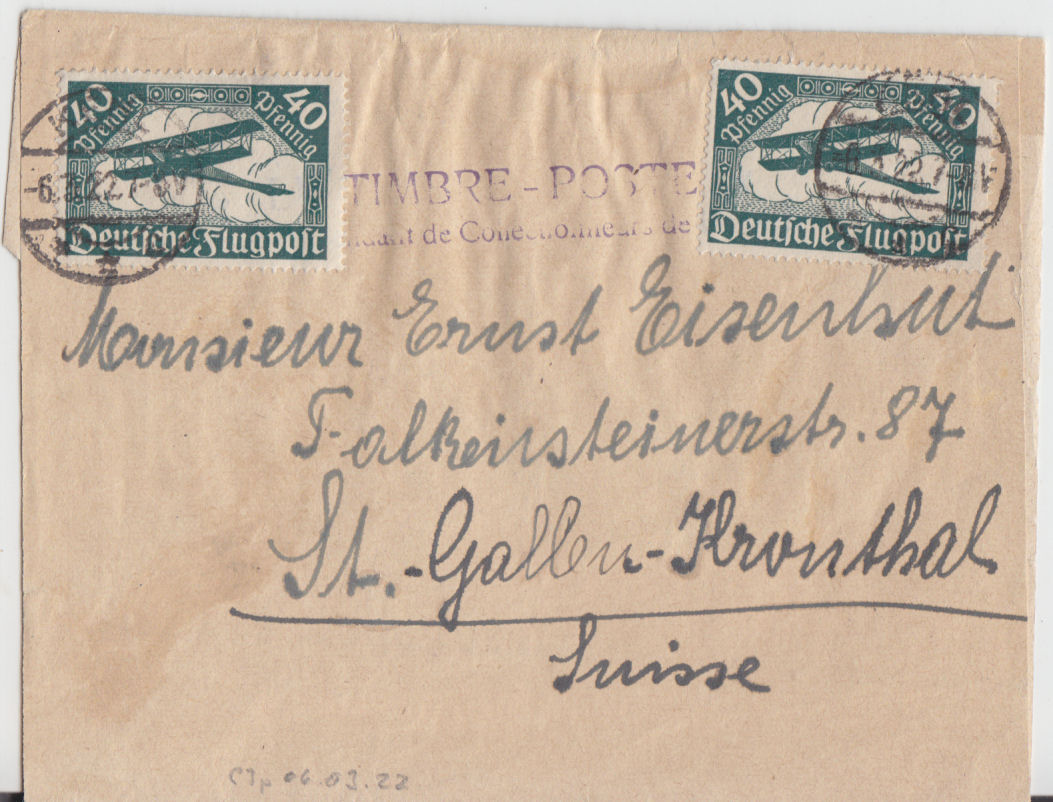 40 40
Pfennig Pfennig
Deutsche Flugpost
40 40
Pfennig Pfennig
Deutsche Flugpost
-6.3.22.7-8V
TIMBRE - POSTE
de Collectionneurs de
Monsieur Ernst Eisenhut
Falkensteinerstr. 87
St.-Gallen-Kronthal
Suisse
06.03.22